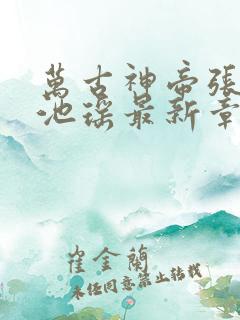 萬古神帝張
池瑤最新章
崔金蘭
未經同意禁止轉載